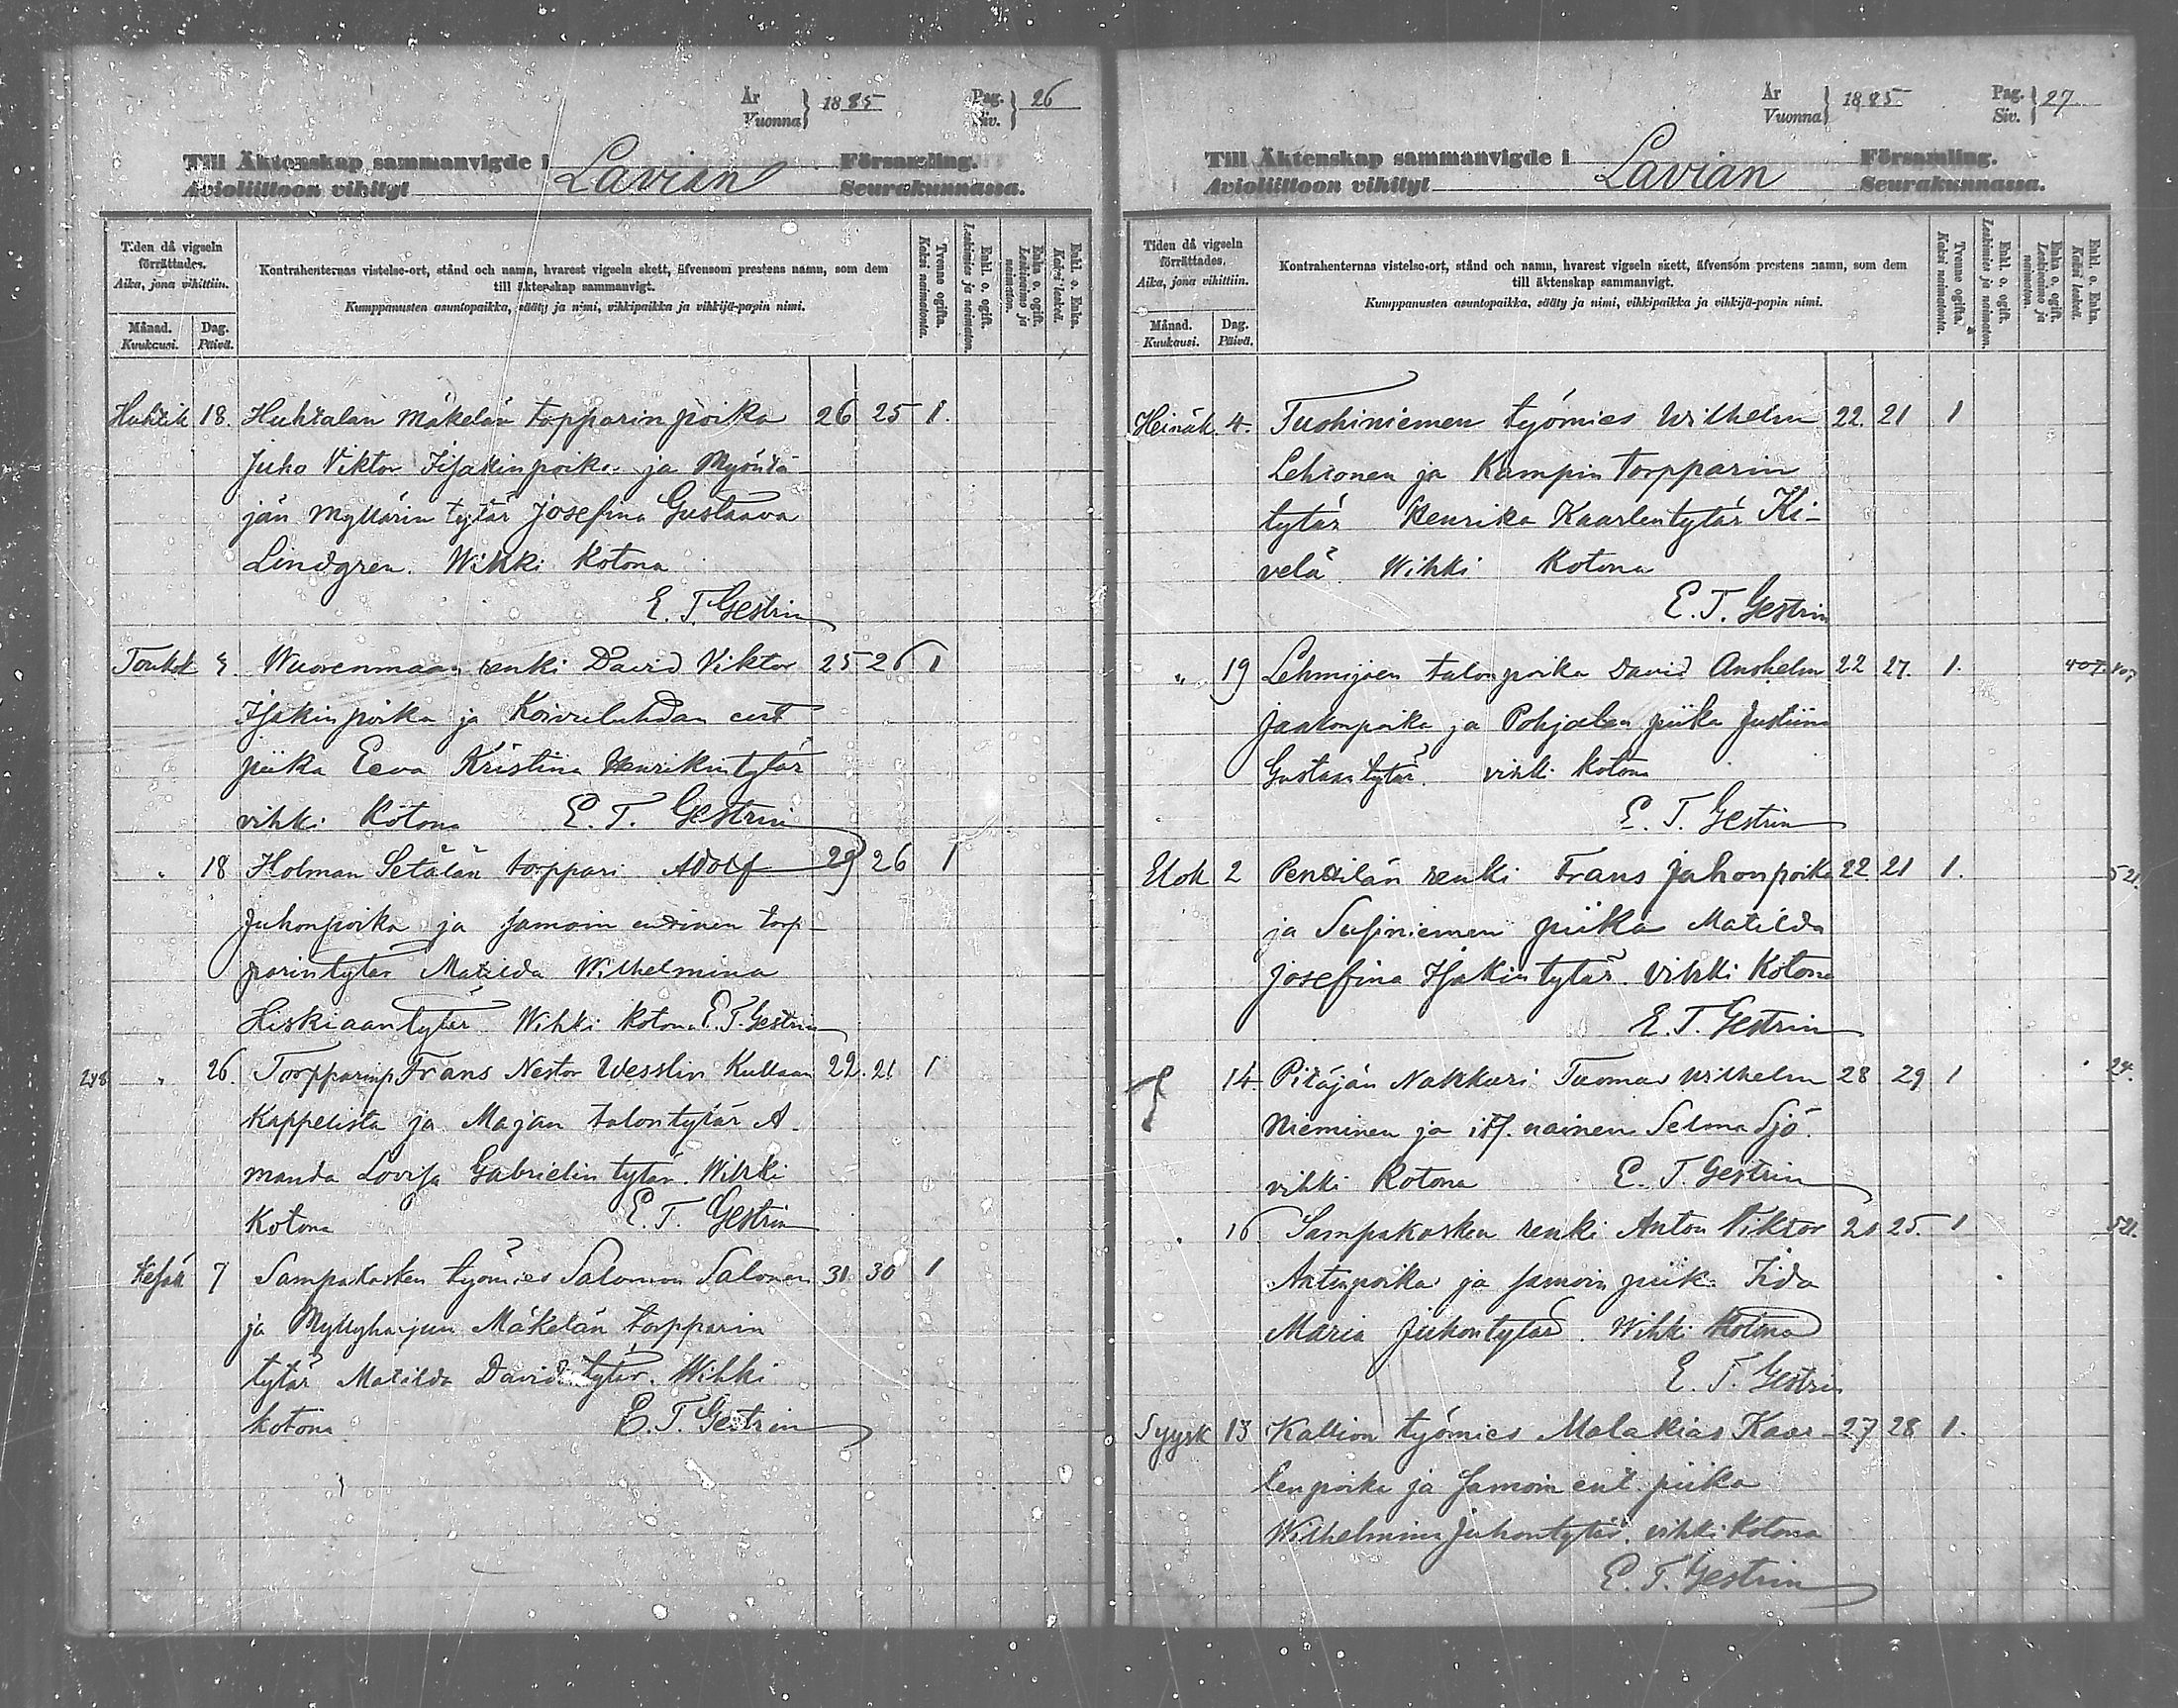 År
Vuonna } 1885
Pag.
Siv. } 26
Till Äktenskap sammanvigde i Lavian Församling.
Avioliittoon vihityt Seurakunnassa.
Tiden då vigseln förrättades.
Aika, jona vihittiin.
Månad.
Kuukausi.
Dag.
Päivä.
Kontrahenternas vistelse-ort, stånd och namn, hvarest vigseln skett, äfvensom prestens namn, som dem
till äktenskap sammanvigt.
Kumppanusten asuntopaikka, sääty ja nimi, vihkipaikka ja vihkijä-papin nimi.
Tvenne ogifta.
Kaksi naimatonta.
Enkl. o. ogift.
Leskimies ja naimaton.
Enka o. ogift.
Leskivaimo ja naimaton.
Enkl. o. Enka.
Kaksi leskeä.
Huhtik 18. Huhtalan Mäkelän torpparin poika 26 25 1.
Juho Viktor Iisakinpoika ja Myöntä
jän Myllärin tytär Josefina Gustaava
Lindgren. Wihki kotona
E. T. Gestrin
Toukok Wuorenmaan renki David Viktor 25 26 1
Isakinpoika ja Koiviluhdan
piika Eeva Kristina Henrikintytär
vihki Kotona E. T. Gestrin
" 18 Holman Setälän torppari Adolf 29 26 1
Juhonpoika ja samoin entinen torp-
parintytär Matilda Wilhelmina
Hiskiaantytär. Wihki kotona E. T. Gestrin
248 " 26. Torpparinp. Frans Nestor Wesslin Kullaan 22. 21 1
Kappelista ja Majan talontytär A-
manda Lovisa Gabrielintytär. Wihki
Kotona E. T. Gestrin
Kesäk 7 Sampakosken työmies Salomon Salonen 31 30 1
ja Myllyharjun Mäkelän torpparin
tytär Matilda Davidintytär. Wihki
kotona E. T. Gestrin
År
Vuonna } 1885
Pag.
Siv. } 27
Till Äktenskap sammanvigde i Lavian Församling.
Avioliittoon vihityt Seurakunnassa.
Tiden då vigseln förrättades.
Aika, jona vihittiin.
Månad.
Kuukausi.
Dag.
Päivä.
Kontrahenternas vistelse-ort, stånd och namn, hvarest vigseln skett, äfvensom prestens namn, som dem
till äktenskap sammanvigt.
Kumppanusten asuntopaikka, sääty ja nimi, vihkipaikka ja vihkijä-papin nimi.
Tvenne ogifta.
Kaksi naimatonta.
Enkl. o. ogift.
Leskimies ja naimaton.
Enka o. ogift.
Leskivaimo ja naimaton.
Enkl. o. Enka.
Kaksi leskeä.
Heinäk. 4. Tuohiniemen työmies Wilhelm 22. 21 1
Lehtonen ja Kampin torpparin
tytär Henrika Kaarlentytär Ki-
velä. Wihki Kotona
E. T. Gestrin
" 19 Lehmijoen talonpoika David Anshelm 22 27. 1. 407. 407
Jaakonpoika ja Pohjalan piika Justiina
Gustaantytär. vihki kotona
E. T. Gestrin
Elok 2 Penttilän renki Frans Juhonpoika 22. 21 1. 521.
ja Susiniemen piika Matilda
Josefina Isakintytär. Vihki Kotona
E. T. Gestrin
14. Pitäjän Nahkuri Tuomas Wilhelm 28 29 1 24.
Nieminen ja its. nainen Selma Sjö.
vihki Kotona E. T. Gestrin
" 16 Sampakosken renki Anton Viktor 21 25. 1 521.
Antinpoika ja samoin piika Iida
Maria Juhontytär. Wihki Kotona
E. T. Gestrin
Syysk 13 Kallion työmies Malakias Kaar- 27 28 1.
lenpoika ja samoin ent. piika
Wilhelmina Juhontytär. vihki Kotona
E. T. Gestrin